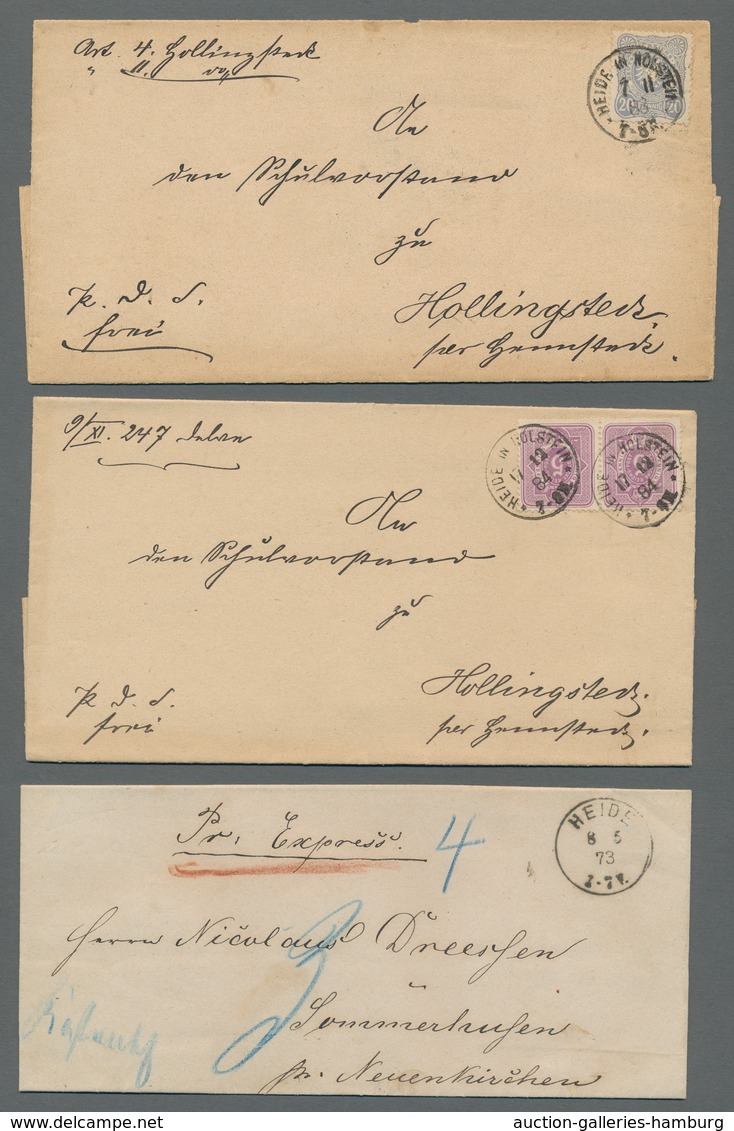 Art. 4. Hollingsteck
" 11. do
HEIDE IN HOLSTEIN
7 11
83
7-8N.
20 PFENNIG 20
An
den Schulvorstand
zu
Hollingsteck.
per Hennsteck.
K. d. S.
frei
9/XI. 247 Delve
HEIDE IN HOLSTEIN
17 12
84
7-8N
HEIDE IN HOLSTEIN
17 12
84
7-8N
An
den Schulvorstand
zu
Hollingsteck.
per Hennsteck.
K. d. S.
frei
Pr. Express.
4
HEIDE
8 5
73
7V.
Herrn Nicolaus Dreessen
3
Sommerhusen
pr. Neuenkirchen
auction-galleries-hamburg